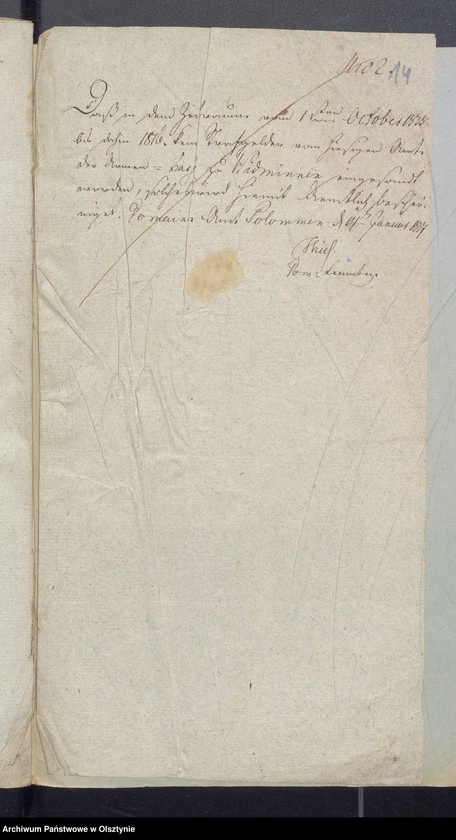 No 2. 14
Daß in dem Zeitraume vom 1ten October
bis dahin 1816. kein Strafgelder vom hiesigen Amte
der Armen = Casse zu Widminnen eingesandt
worden, solches wird hiemit Amtlich beschei-
niget. Domainen Amt Polommen. d Januar
Thiel.
Archiwum Państwowe w Olsztynie